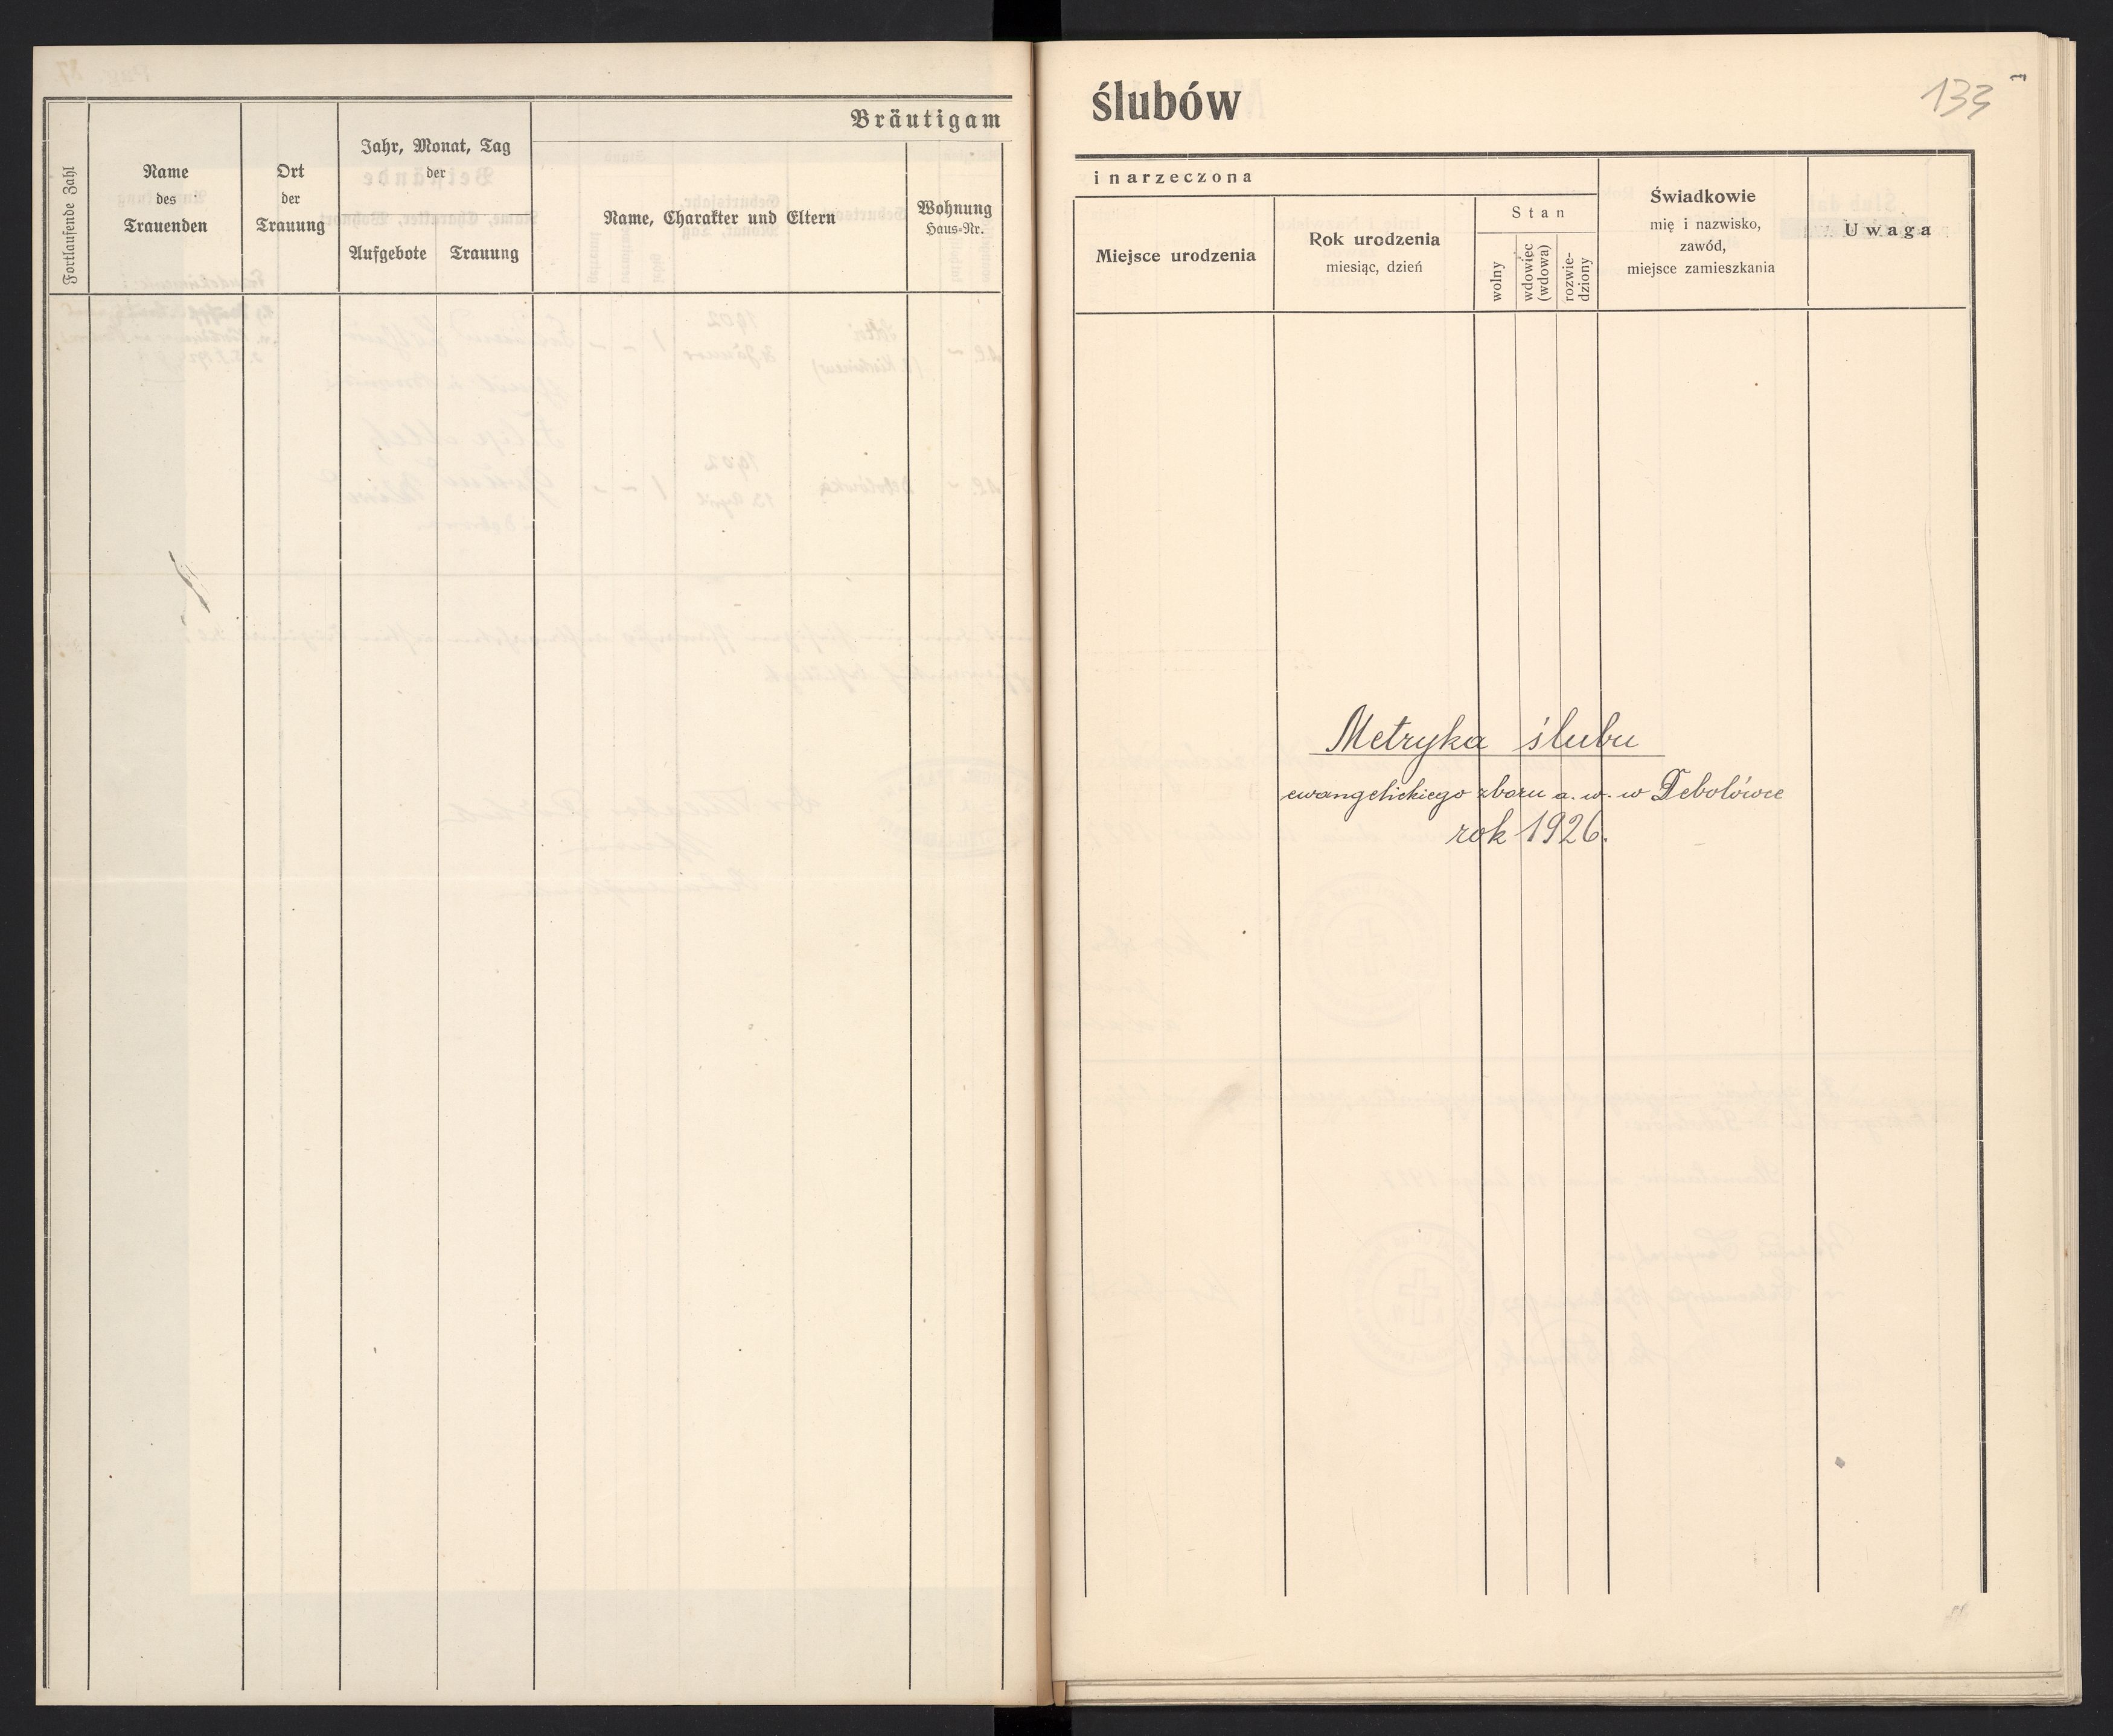 Bräutigam
Fortlaufende Zahl
Name
des
Trauenden
Ort
der
Trauung
Jahr, Monat, Tag
der
Aufgebote
Trauung
Name, Charakter und Eltern
Wohnung
Haus-Nr.
ślubów
133
i narzeczona
Miejsce urodzenia
Rok urodzenia
miesiąc, dzień
Stan
wolny
wdowiec
(wdowa)
rozwie-
dziony
Świadkowie
mię i nazwisko,
zawód,
miejsce zamieszkania
Uwaga
Metryka ślubu
ewangelickiego zboru a. w. w Debolówce
rok 1926.